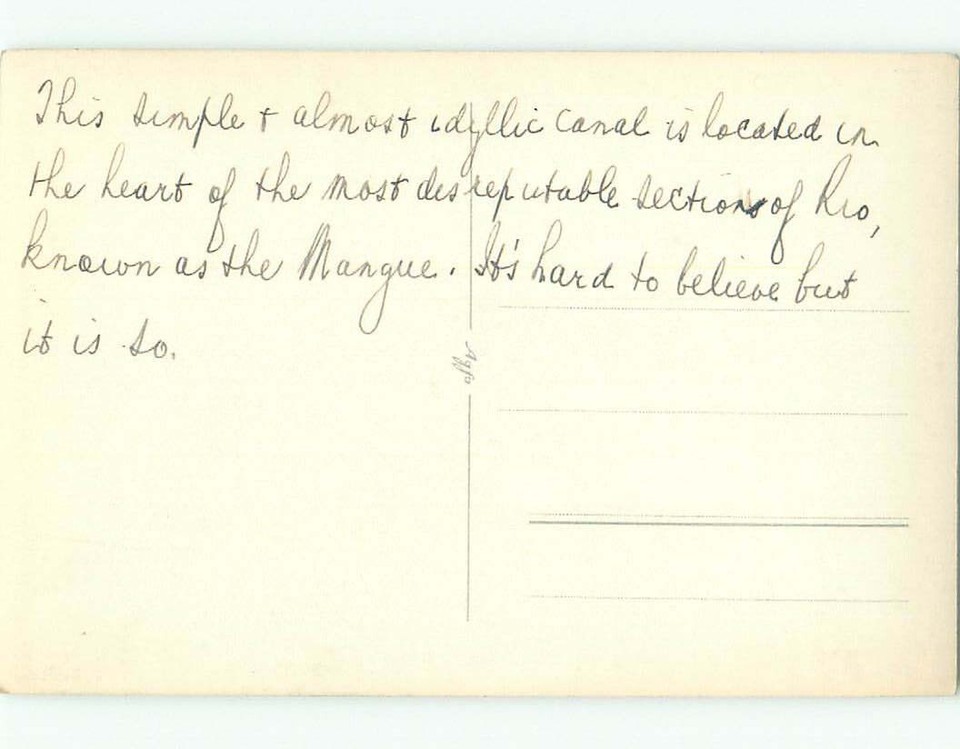 This simple + almost idyllic canal is located in
the heart of the most disreputable sections of Rio,
known as the Mangue. It's hard to believe but
it is so.
Agfa